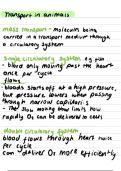 Transport in animals
mass transport - molecules being
carried in a transport medium through
a circulatory system
single circulatory system eg fish
- blood only moving past the heart
once per cycle
flow
- bloods starts off at a high pressure,
but pressure lowers when passing
through narrow capillaries
- the slow moving how low how
rapidly O₂ can be delivered to cells
double circulatory system
blood flows through heart twice
per cycle
can deliver O₂ more efficiently